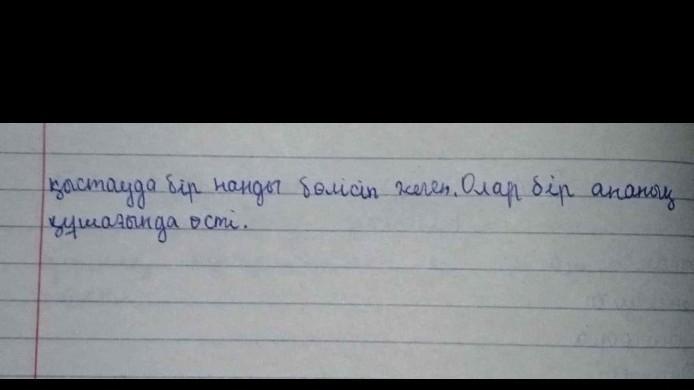 қыстауда бір нанды бөлісіп жеген. Олар бір ананың
құшағында өсті.